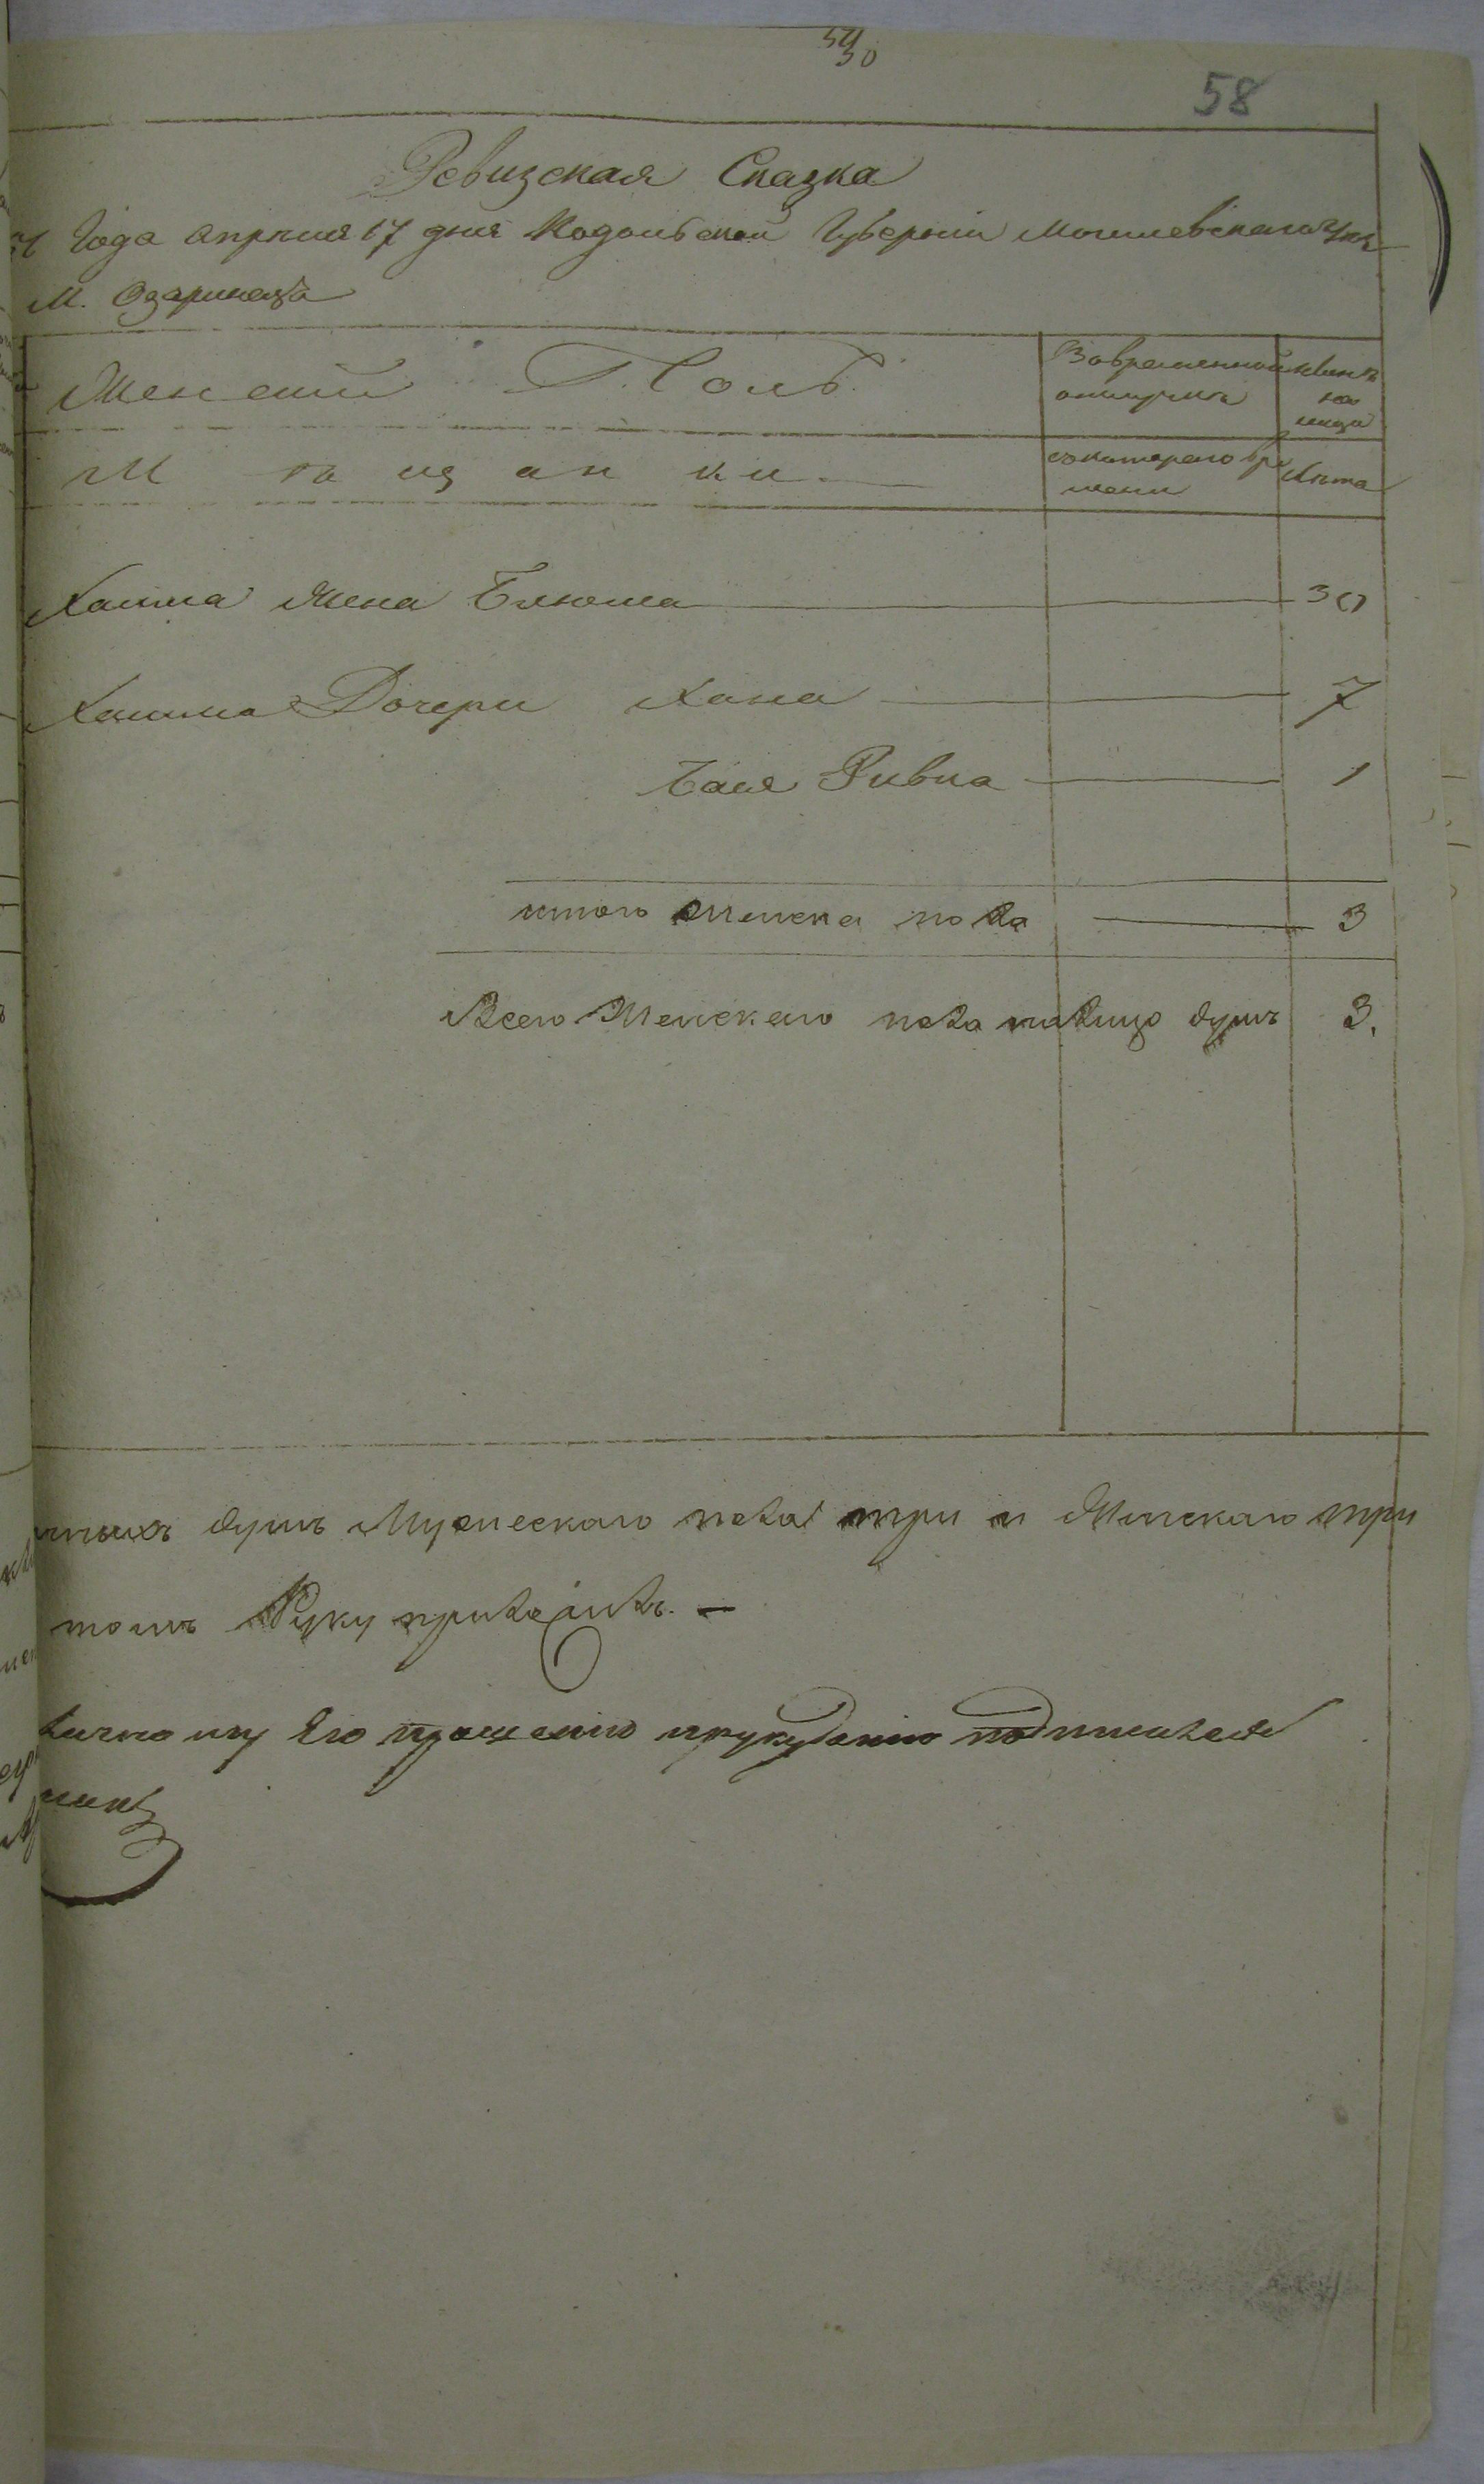 58
Ревизская Сказка
Года апреля 17 дня Подольской Губернии Могилевского уѣз
М. Озаринецъ
Женский Полъ
Вовременной отлучкѣ
Нынѣ на лицо
Мѣщанки
съ котораго вре мени
Лѣта
Хаима Жена Блюма 30
Хаима Дочери Хана 7
Бася Ривка 1
итого женска пола 3
Всего Женскаго пола налицо душъ 3.
душъ Мужескаго пола три и Женскаго три
томъ Руку приложилъ. —
личному Его прошению подписался